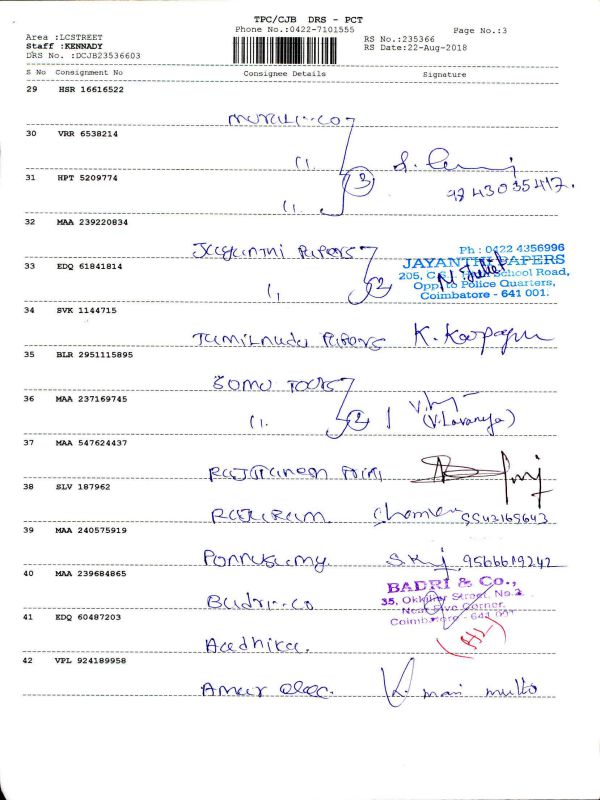 TPC/CJB DRS - PCT
Phone No.:0422-7101555
Page No.:3
Area :LCSTREET
RS No.:235366
Staff :KENNADY
RS Date:22-Aug-2018
DRS No. :DCJB23536603
S No Consignment No Consignee Details Signature
29 HSR 16616522
30 VRR 6538214
11.
31 HPT 5209774
3
9243035417.
11.
32 MAA 239220834
Jayanthi Papers
Ph : 0422 4356996
JAYANTHI PAPERS
33 EDQ 61841814
205, School Road,
11 2
Opp to Police Quarters,
Coimbatore - 641 001.
34 SVK 1144715
Tamilnadu Papers
35 BLR 2951115895
Somu Tours
36 MAA 237169745
11. 2
(V.Lavanya)
37 MAA 547624437
38 SLV 187962
Rajaram
39 MAA 240575919
Ponnusamy 9566619242
40 MAA 239684865
BADRI & Co.,
35, Street, No.2
Badri-co
Near Five Corner,
Coimbatore - 641 001
41 EDQ 60487203
Aadhika.
42 VPL 924189958
Amar elec.